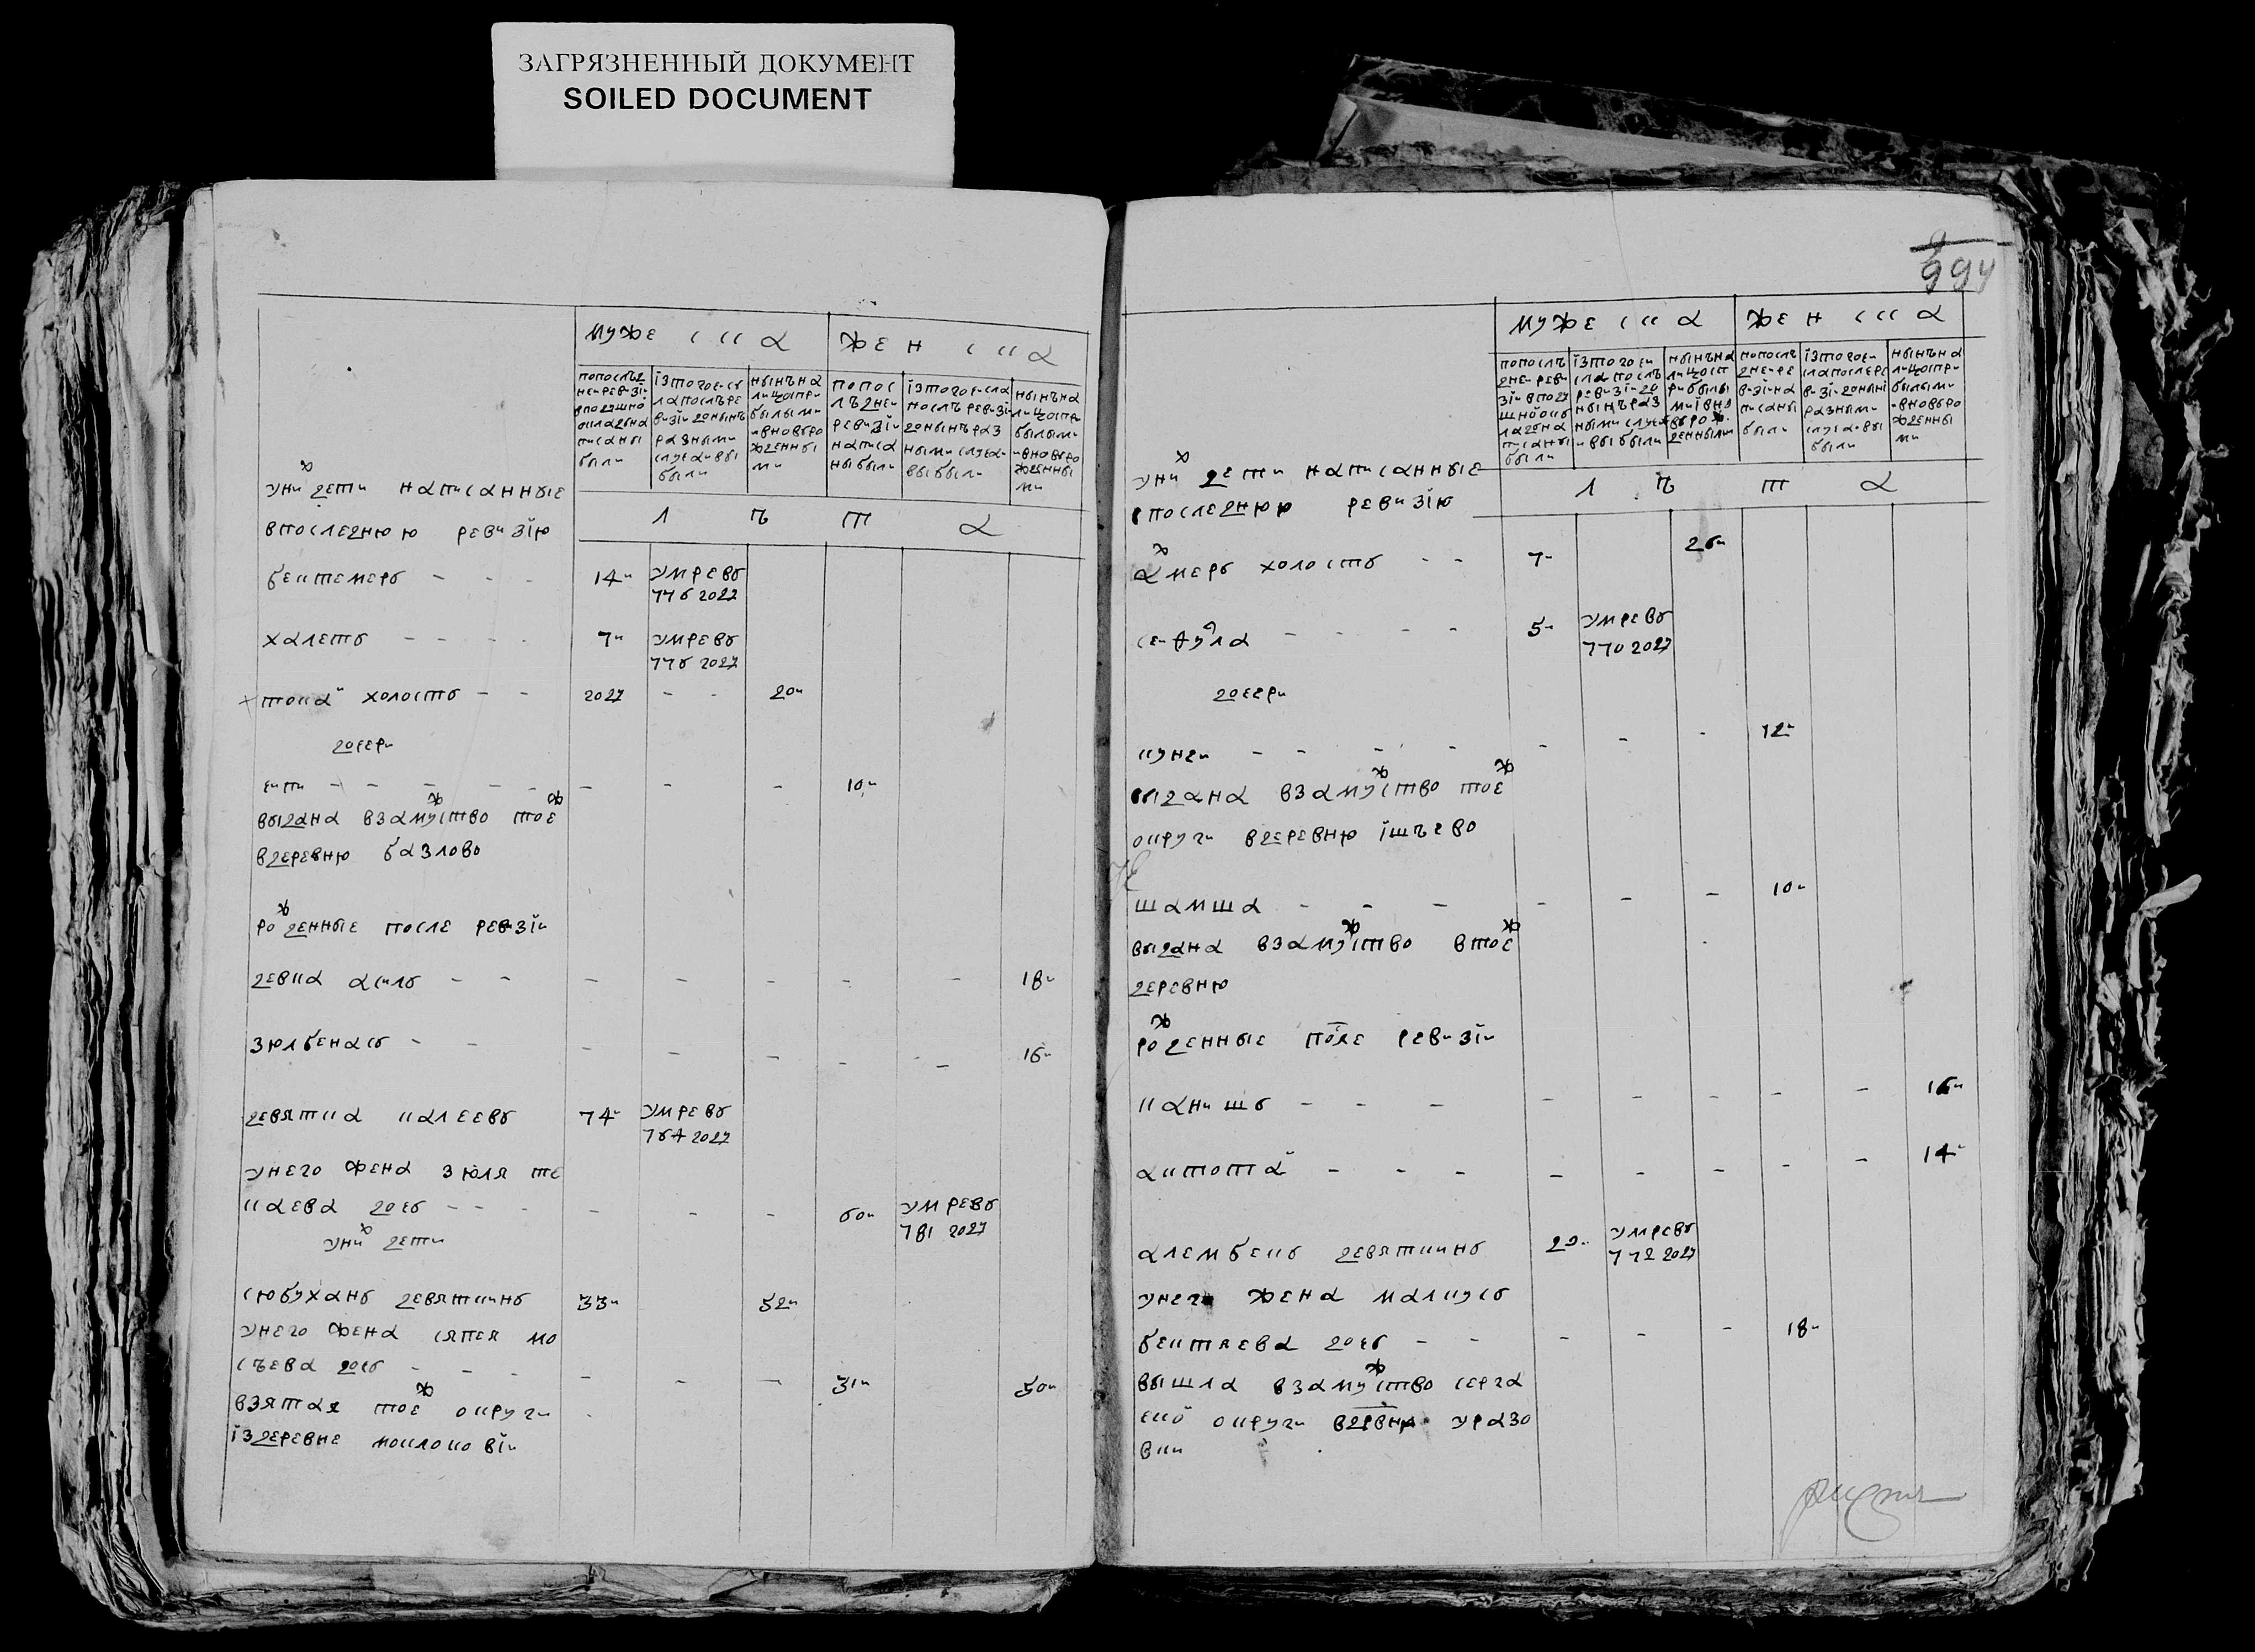 ЗАГРЯЗНЕННЫЙ ДОКУМЕНТ
SOILED DOCUMENT
муже ска жен ска
попослѣд неиревизиі вподушно окладъ написаны были
ізтогочисла послѣревизиі донынѣ разными случаи выбыли
нынѣна лицосприбылыми ивновьрожденными
попослѣднеи ревизиі написаны были
ізтогочисла послѣревизиі донынѣ разными случаи выбыли
нынѣна лицосприбылыми ивновьрожденными
л ѣ т а
уних дети написанные
впоследнюю ревизїю
бектемеръ - - - 14и умревъ
776 году
халетъ - - - - 7и умревъ
776 году
токай холостъ - - году - - 20и
дочери
- - - - - - - - - 10и
выдана взамужство тоеж
вдеревню базлово
рожденные после ревизїи
девка асилъ - - - - - - - 18и
зюлбекасъ - - - - - - - 16и
девятка калеевъ 74и умревъ
784 году
унего жена зюля те
каева дочь - - - - - - 60и умревъ
781 году
уних дети
сюбуханъ девяткинъ 33и 52и
унего жена сяпея мо
сѣева дочь - - - - - - 31и 50и
взятая тоеж округи
іздеревне моклоковїи
994
муже ска жен ска
попослѣднеи ревизиі вподушной окладъ написаны были
ізтогочисла послѣ ревизиі донынѣ разными случаи выбыли
нынѣна лицосприбылыми івновьрожденными
попослѣднеи ревизиі написаны были
ізтогочисла послѣ ревизиі донынѣ разными случаи выбыли
нынѣна лицосприбылыми ивновьрожденными
л ѣ т а
уних дети написанные
впоследнюю ревизїю
ахмеръ холостъ - - 7и 26и
- - - - 5и умревъ
770 году
дочери
кунчи - - - - - - - 12и
выдана взамужство тоеж
округи вдеревню ішѣево
шамша - - - - - - 10и
выдана взамужство втоеж
деревню
рожденные после ревизїи
канишъ - - - - - - - - 16и
актотай - - - - - - - - 14и
алембекъ девяткинъ умревъ
772 году
унего жена малкусъ
бектяева дочь - - - - - 18и
вышла взамужство серга
чкой округи вдеревню уразо
вки